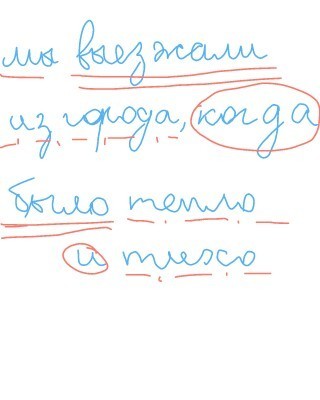 мы выезжали
из города, когда
было тепло
и тихо